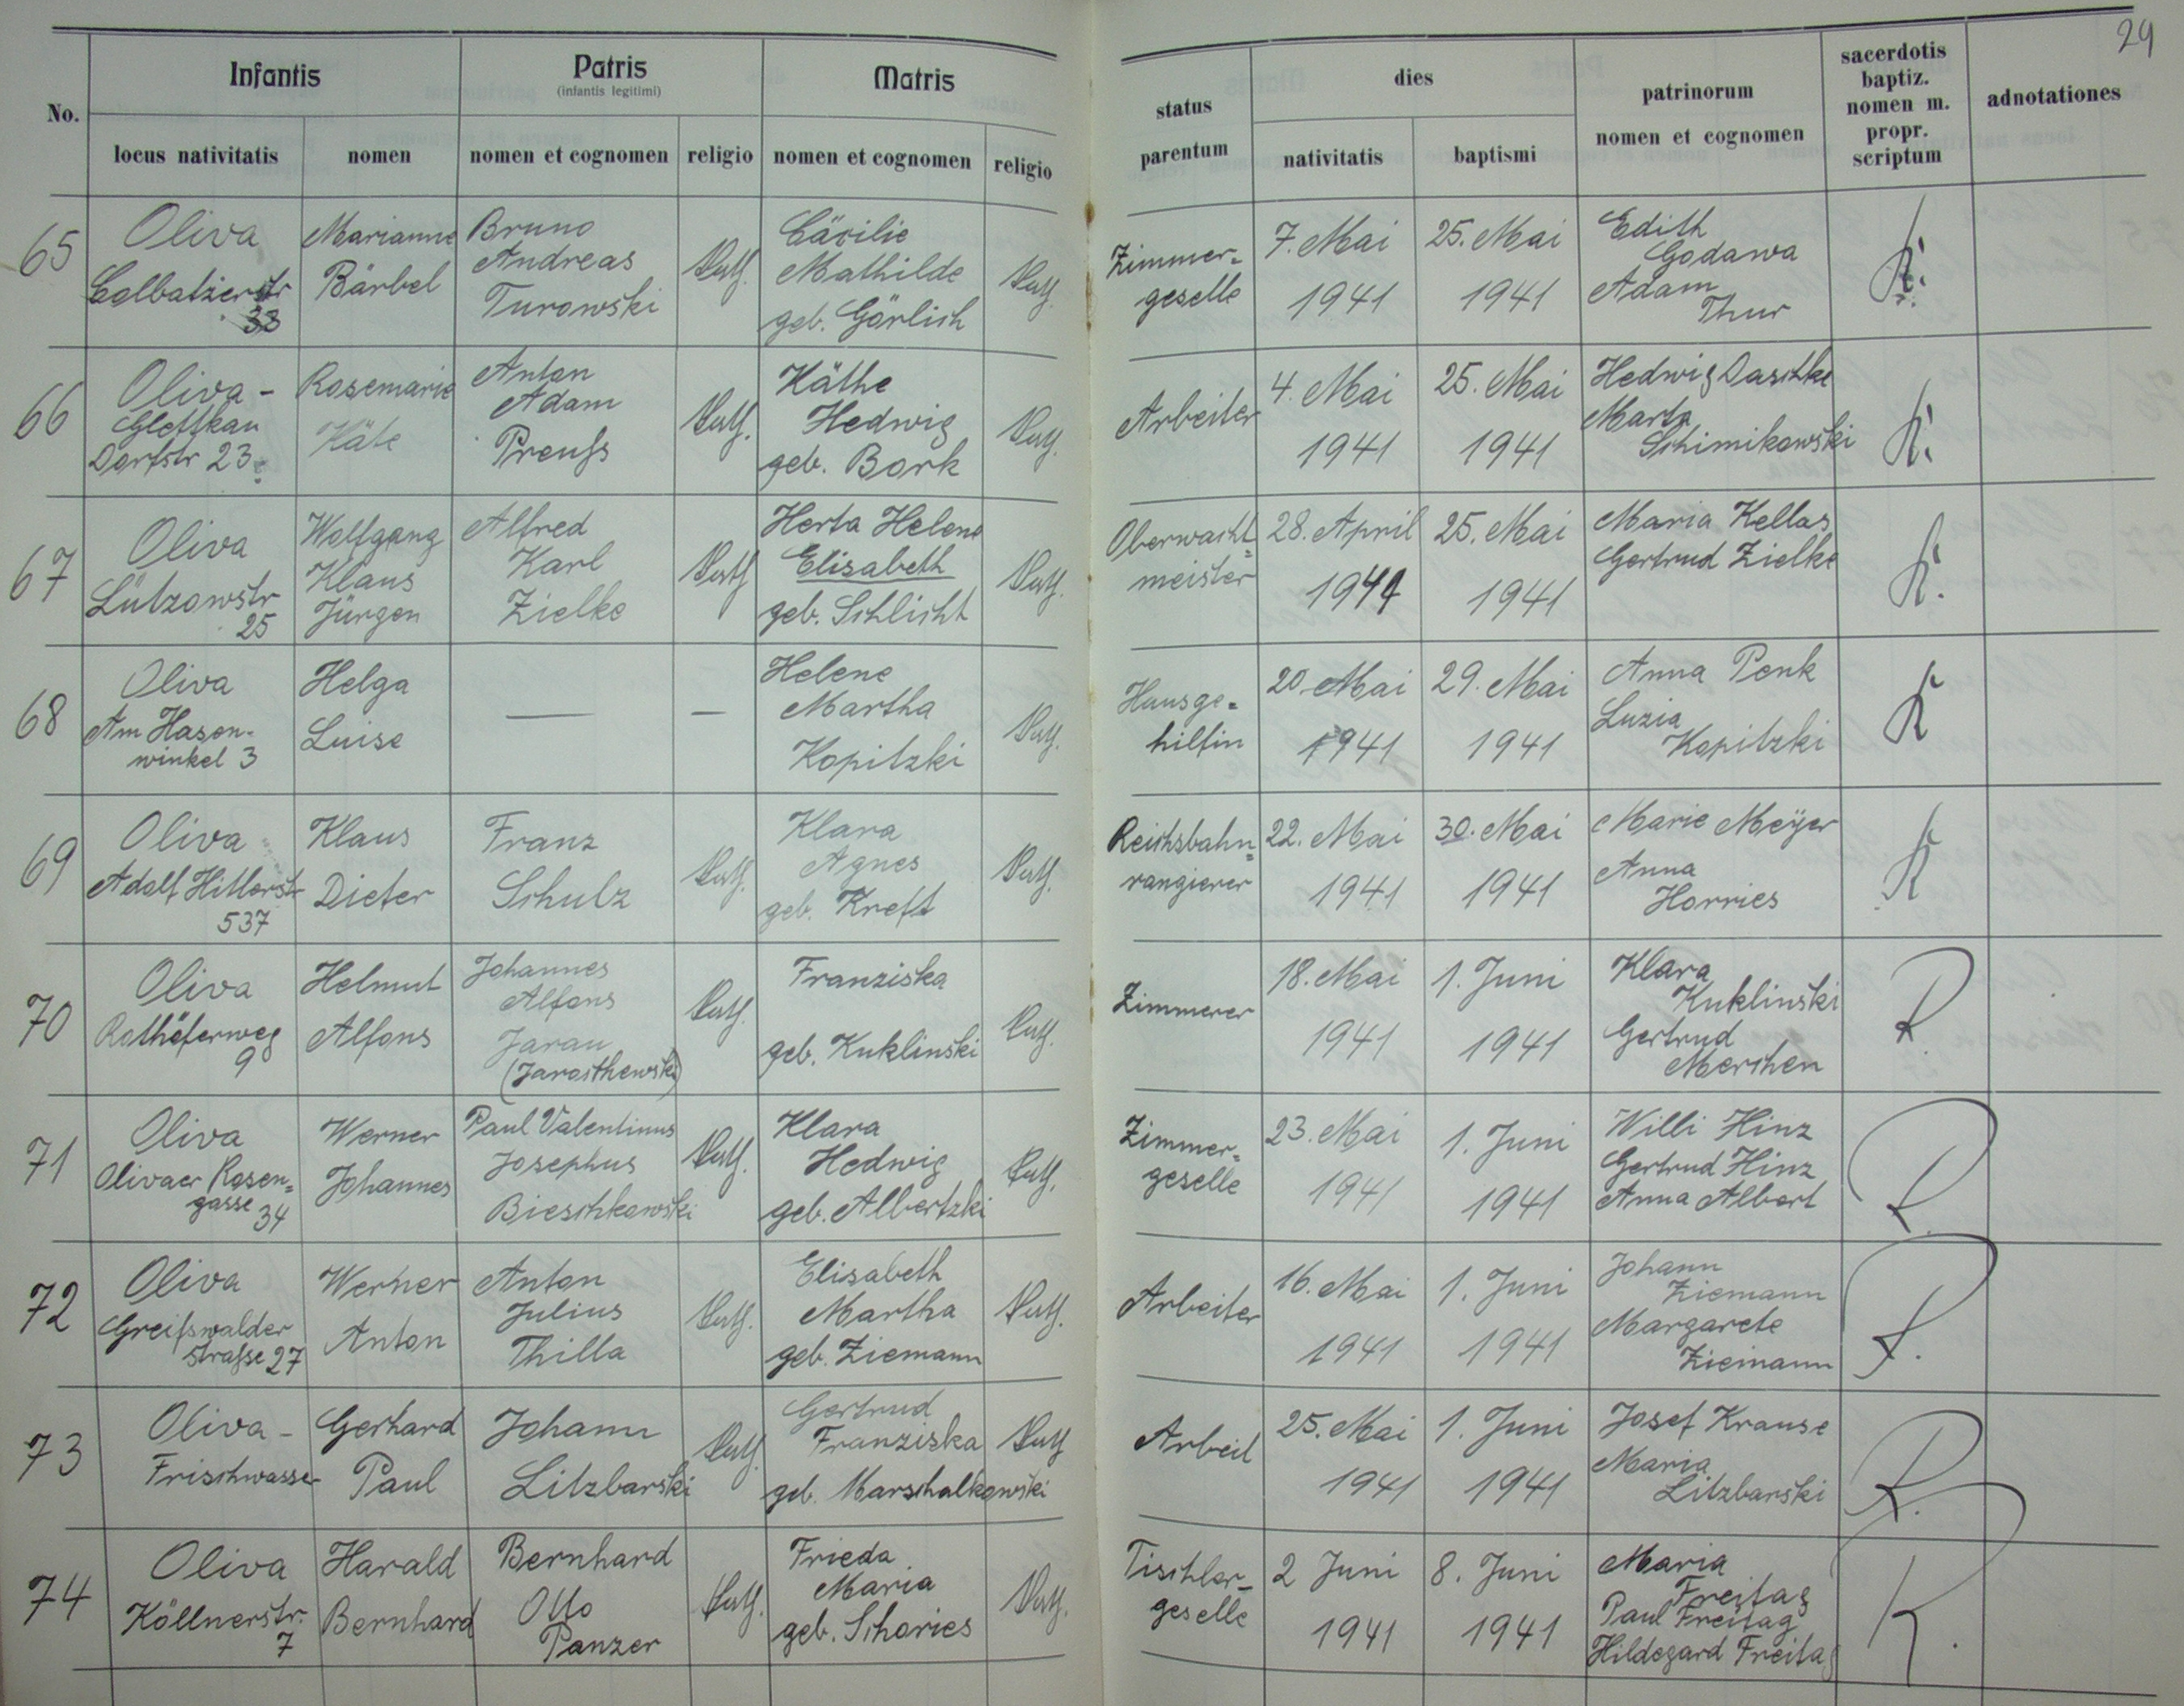 29
No.
Infantis
Patris
(infantis legitimi)
Matris
status
parentum
dies
patrinorum
nomen et cognomen
sacerdotis
baptiz.
nomen m.
propr.
scriptum
adnotationes
locus nativitatis
nomen
nomen et cognomen
religio
nomen et cognomen
religio
nativitatis
baptismi
65
Oliva
Colbatzerstr
33
Marianne
Bärbel
Bruno
Andreas
Turowski
kath.
Cäcilie
Mathilde
geb. Görlich
kath.
Zimmer=
geselle
7. Mai
1941
25. Mai
1941
Edith
Godawa
Adam
Thur
K.
66
Oliva -
Glettkau
Dorfstr 23
Rosemarie
Käte
Anton
Adam
Preuß
kath.
Käthe
Hedwig
geb. Bork
kath.
Arbeiter
4. Mai
1941
25. Mai
1941
Hedwig Daschke
Marta
Schimikowski
K.
67
Oliva
Lützowstr
25
Wolfgang
Klaus
Jürgen
Alfred
Karl
Zielke
kath
Herta Helene
Elisabeth
geb. Schlicht
kath.
Oberwacht=
meister
28. April
1941
25. Mai
1941
Maria Kellas
Gertrud Zielke
K.
68
Oliva
Am Hasen-
winkel 3
Helga
Luise
—
—
Helene
Martha
Kopitzki
kath.
Hausge=
hilfin
20. Mai
1941
29. Mai
1941
Anna Penk
Luzia
Kopitzki
K
69
Oliva
Adolf Hitlerstr
537
Klaus
Dieter
Franz
Schulz
kath.
Klara
Agnes
geb. Kreft
kath.
Reichsbahn=
rangierer
22. Mai
1941
30. Mai
1941
Marie Meÿer
Anna
Horries
K
70
Oliva
Rothöferweg
9
Helmut
Alfons
Johannes
Alfons
Jarau
(Jaroschewski)
kath.
Franziska
geb. Kuklinski
kath.
Zimmerer
18. Mai
1941
1. Juni
1941
Klara
Kuklinski
Gertrud
Merchen
71
Oliva
Olivaer Rosen=
gasse 34
Werner
Johannes
Paul Valentinus
Josephus
Bieschkowski
kath.
Klara
Hedwig
geb. Albertzki
kath.
Zimmer=
geselle
23. Mai
1941
1. Juni
1941
Willi Hinz
Gertrud Hinz
Anna Albert
72
Oliva
Greifswalder
straße 27
Werner
Anton
Anton
Julius
Thilla
kath.
Elisabeth
Martha
geb. Ziemann
kath.
Arbeiter
16. Mai
1941
1. Juni
1941
Johann
Ziemann
Margarete
Ziemann
73
Oliva -
Frischwasser
Gerhard
Paul
Johann
Litzbarski
kath.
Gertrud
Franziska
geb. Marschalkowski
kath
Arbeit
25. Mai
1941
1. Juni
1941
Josef Krause
Maria
Litzbarski
74
Oliva
Köllnerstr.
7
Harald
Bernhard
Bernhard
Otto
Panzer
kath.
Frieda
Maria
geb. Schories
kath.
Tischler-
geselle
2 Juni
1941
8. Juni
1941
Maria
Freitag
Paul Freitag
Hildegard Freitag
K.